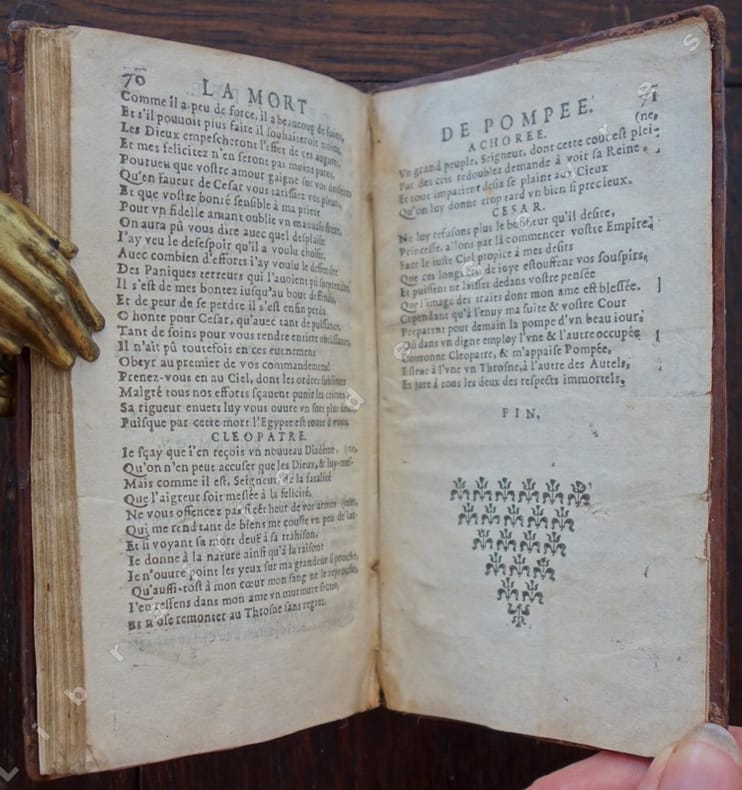 70 LA MORT
Comme il a peu de force, il a beaucoup de soins,
Et s'il pouuoit plus faire il souhaiteroit moins,
Les Dieux empescheront l'effet de ces augures,
Et mes felicitez n'en seront pas moins pures,
Pourueu que vostre amour gaigne sur vos douleurs
Qu'en faueur de Cesar vous tarissiez vos pleurs,
Et que vostre bonté sensible à ma priere
Pour vn fidelle amant oublie vn mauuais frere,
On aura pû vous dire auec quel desplaisir
I'ay veu le desespoir qu'il a voulu choisir,
Auec combien d'efforts i'ay voulu le deffendre
Des Paniques terreurs qui l'auoient pû surprendre,
Il s'est de mes bontez iusqu'au bout deffendu,
Et de peur de se perdre il s'est enfin perdu
O honte pour Cesar, qu'auec tant de puissance,
Tant de soins pour vous rendre entiere obeïssance,
Il n'ait pû toutefois en ces euenemens
Obeyr au premier de vos commandemens!
Prenez-vous en au Ciel, dont les ordres sublimes
Malgré tous nos efforts sçauent punir les crimes,
Sa rigueur enuers luy vous ouure vn sort plus doux,
Puisque par cette mort l'Egypte est toute à vous,
CLEOPATRE.
Ie sçay que i'en reçois vn nouueau Diadéme,
Qu'on n'en peut accuser que les Dieux, & luy-mes-
Mais comme il est, Seigneur, de la fatalité
Que l'aigreur soit meslée à la felicité,
Ne vous offencez pas si cét heur de vos armes
Qui me rend tant de biens me couste vn peu de lar-
Et si voyant sa mort deuë à sa trahison,
Ie donne à la nature ainsi qu'à la raison
Ie n'ouure point les yeux sur ma grandeur si proche,
Qu'aussi-tost à mon cœur mon sang ne le reproche,
I'en ressens dans mon ame vn murmure secret,
Et n'ose remonter au Throsne sans regret.
DE POMPEE. 71
ACHOREE. (ne,
Vn grand peuple, Seigneur, dont cette cour est plei-
Par des cris redoublez demande à voir sa Reine,
Et tout impatient desia se plaint aux Cieux
Qu'on luy donne trop tard vn bien si precieux.
CESAR.
Ne luy refusons plus le bonheur qu'il desire,
Princesse, allons par là commencer vostre Empire,
Face le iuste Ciel propice à mes desirs
Que ces longs cris de ioye estouffent vos souspirs,
Et puissent ne laisser dedans vostre pensée
Que l'image des traits dont mon ame est blessée.
Cependant qu'à l'enuy ma suite & vostre Cour
Preparent pour demain la pompe d'vn beau iour,
Où dans vn digne employ l'vne & l'autre occupée
Couronne Cleopatre, & m'appaise Pompée,
Esleue à l'vne vn Throsne, à l'autre des Autels,
Et jure à tous les deux des respects immortels,
FIN,